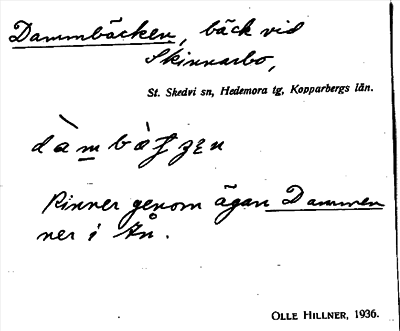 Dammbäcken, bäck vid
Skinnarbo,
St. Skedvi sn, Hedemora tg, Kopparbergs län.
Rinner genom ägan Dammen
ner i Ån.
OLLE HILLNER, 1936.